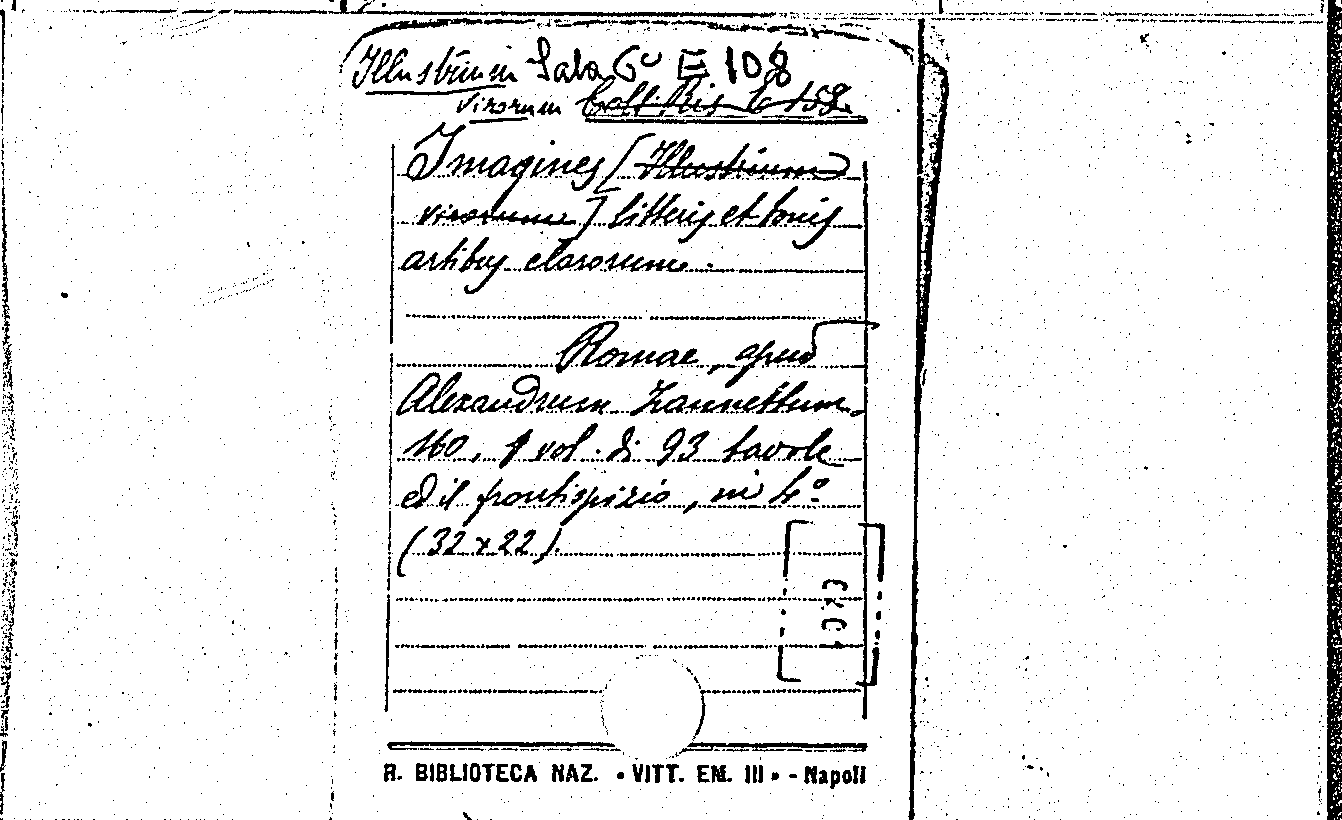 Illustrium Sala 6ª E 108
virorum Coll. Ris. b 158.
Imagines [Illustrium
virorum] litteris et bonis
artibus clarorum.
Romae, apud
Alexandrum Zannettum.
160, 1 vol. di 93 tavole
ed il frontispizio, in 4º
(32 x 22).
R. BIBLIOTECA NAZ. « VITT. EM. III » - Napoli